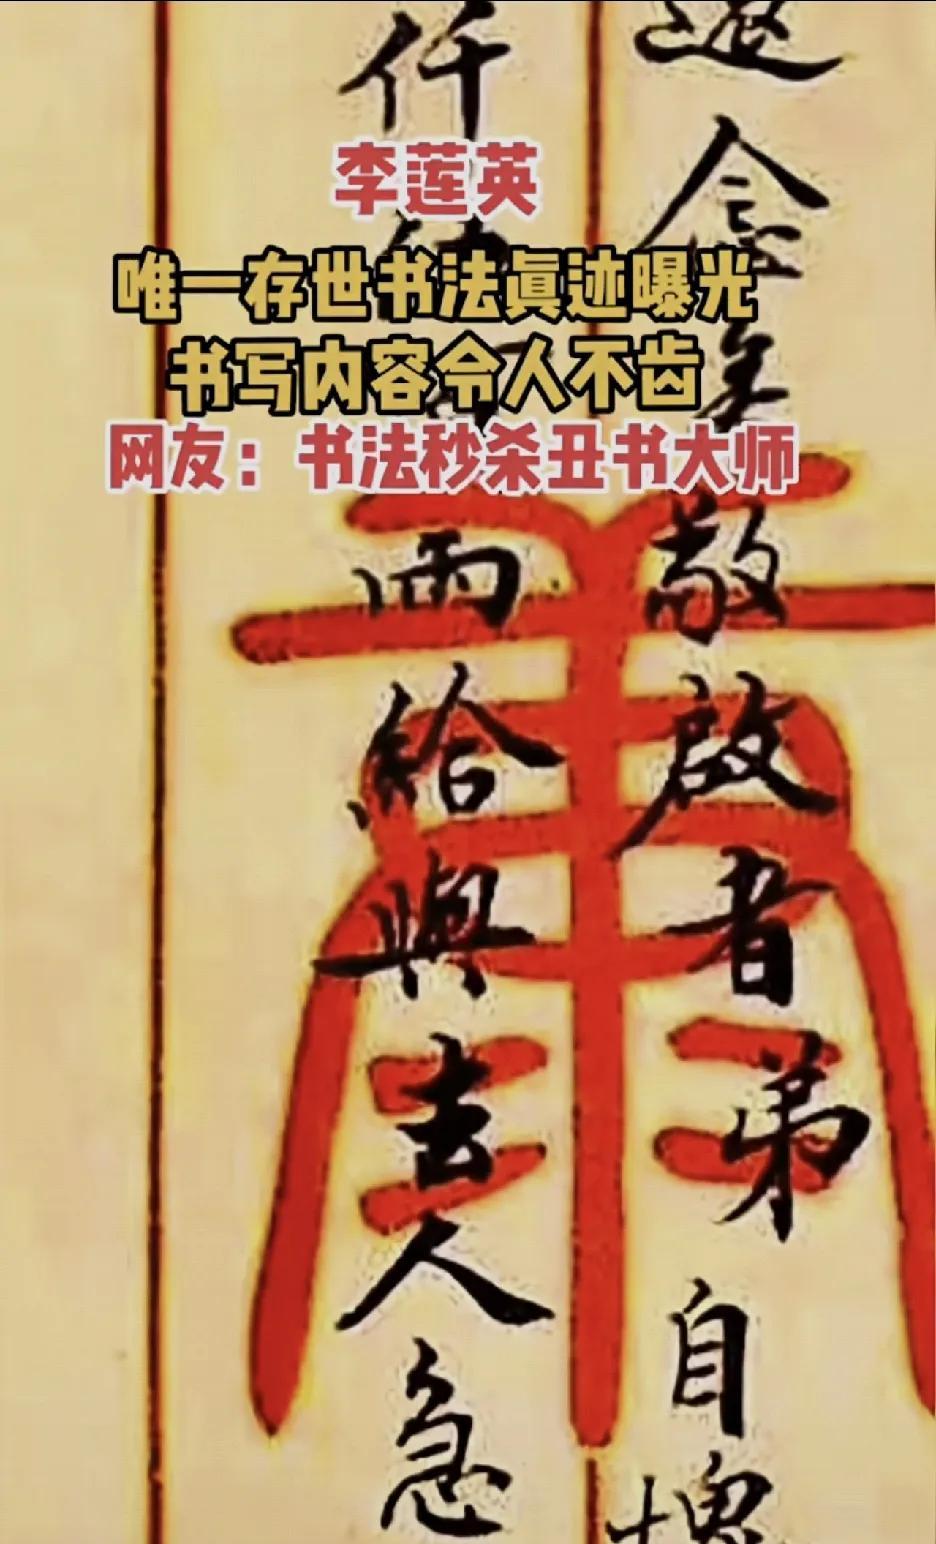 李莲英
唯一存世书法真迹曝光
书写内容令人不齿
网友：书法秒杀丑书大师
念矣敬啟者弟自愧
仟而給與去人急